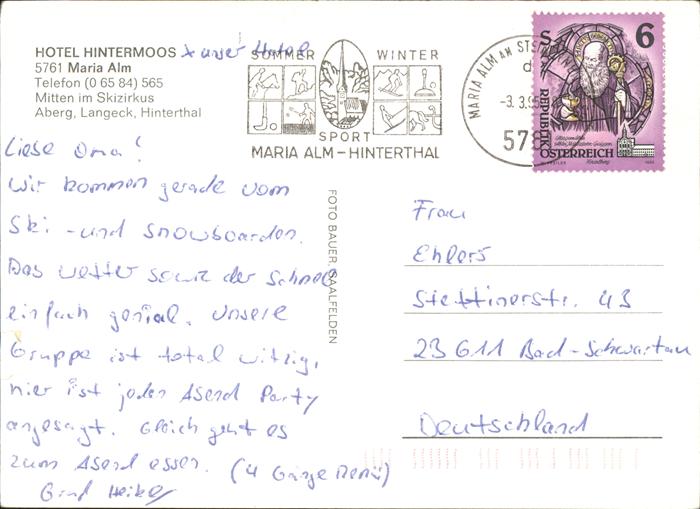 HOTEL HINTERMOOS x unser Hotel
5761 Maria Alm
Telefon (0 65 84) 565
Mitten im Skizirkus
Aberg, Langeck, Hinterthal
SOMMER WINTER
SPORT
MARIA ALM – HINTERTHAL
MARIA ALM AM
-3.3.9
S 6
REPUBLIK
ÖSTERREICH
Liebe Oma!
Wir kommen gerade vom
Ski - und snowboarden.
Das Wetter sowie der Schnee
einfach genial. Unsere
Gruppe ist total witzig,
hier ist jeden Abend Party
angesagt. Gleich geht es
zum Abend essen. (4 Gänge Menü)
Gruß Heike
FOTO BAUER, SAALFELDEN
Frau
Ehlers
Stettinerstr. 43
23611 Bad-Schwartau
Deutschland